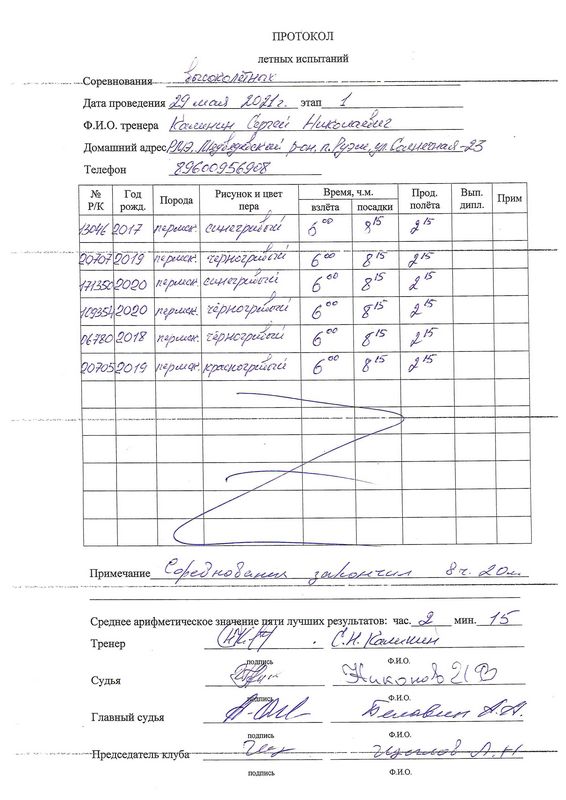 ПРОТОКОЛ
летных испытаний
Соревнования высоколётных
Дата проведения 29 мая 2021г. этап 1
Ф.И.О. тренера Калинин Сергей Николаевич
Домашний адрес РМЭ, Медведевский р-он, п. Руэм, ул. Солнечная-23
Телефон 89600956908
№ Р/К Год рожд. Порода Рисунок и цвет пера Время, ч.м. взлёта посадки Прод. полёта Вып. дипл. Прим
13046 2017 пермск. синегривый 6 00 8 15 2 15
20707 2019 пермск. черногривый 6 00 8 15 2 15
171350 2020 пермск. синегривый 6 00 8 15 2 15
169354 2020 пермск. чёрногривый 6 00 8 15 2 15
06780 2018 пермск. чёрногривый 6 00 8 15 2 15
20705 2019 пермск. красногривый 6 00 8 15 2 15
Примечание Соревнования закончил 8ч. 20м
Среднее арифметическое значение пяти лучших результатов: час. 2 мин. 15
Тренер С.Н. Калинин
подпись Ф.И.О.
Судья Никонов И В
подпись Ф.И.О.
Главный судья Белавин А.А.
подпись Ф.И.О.
Председатель клуба Л.Н
подпись Ф.И.О.